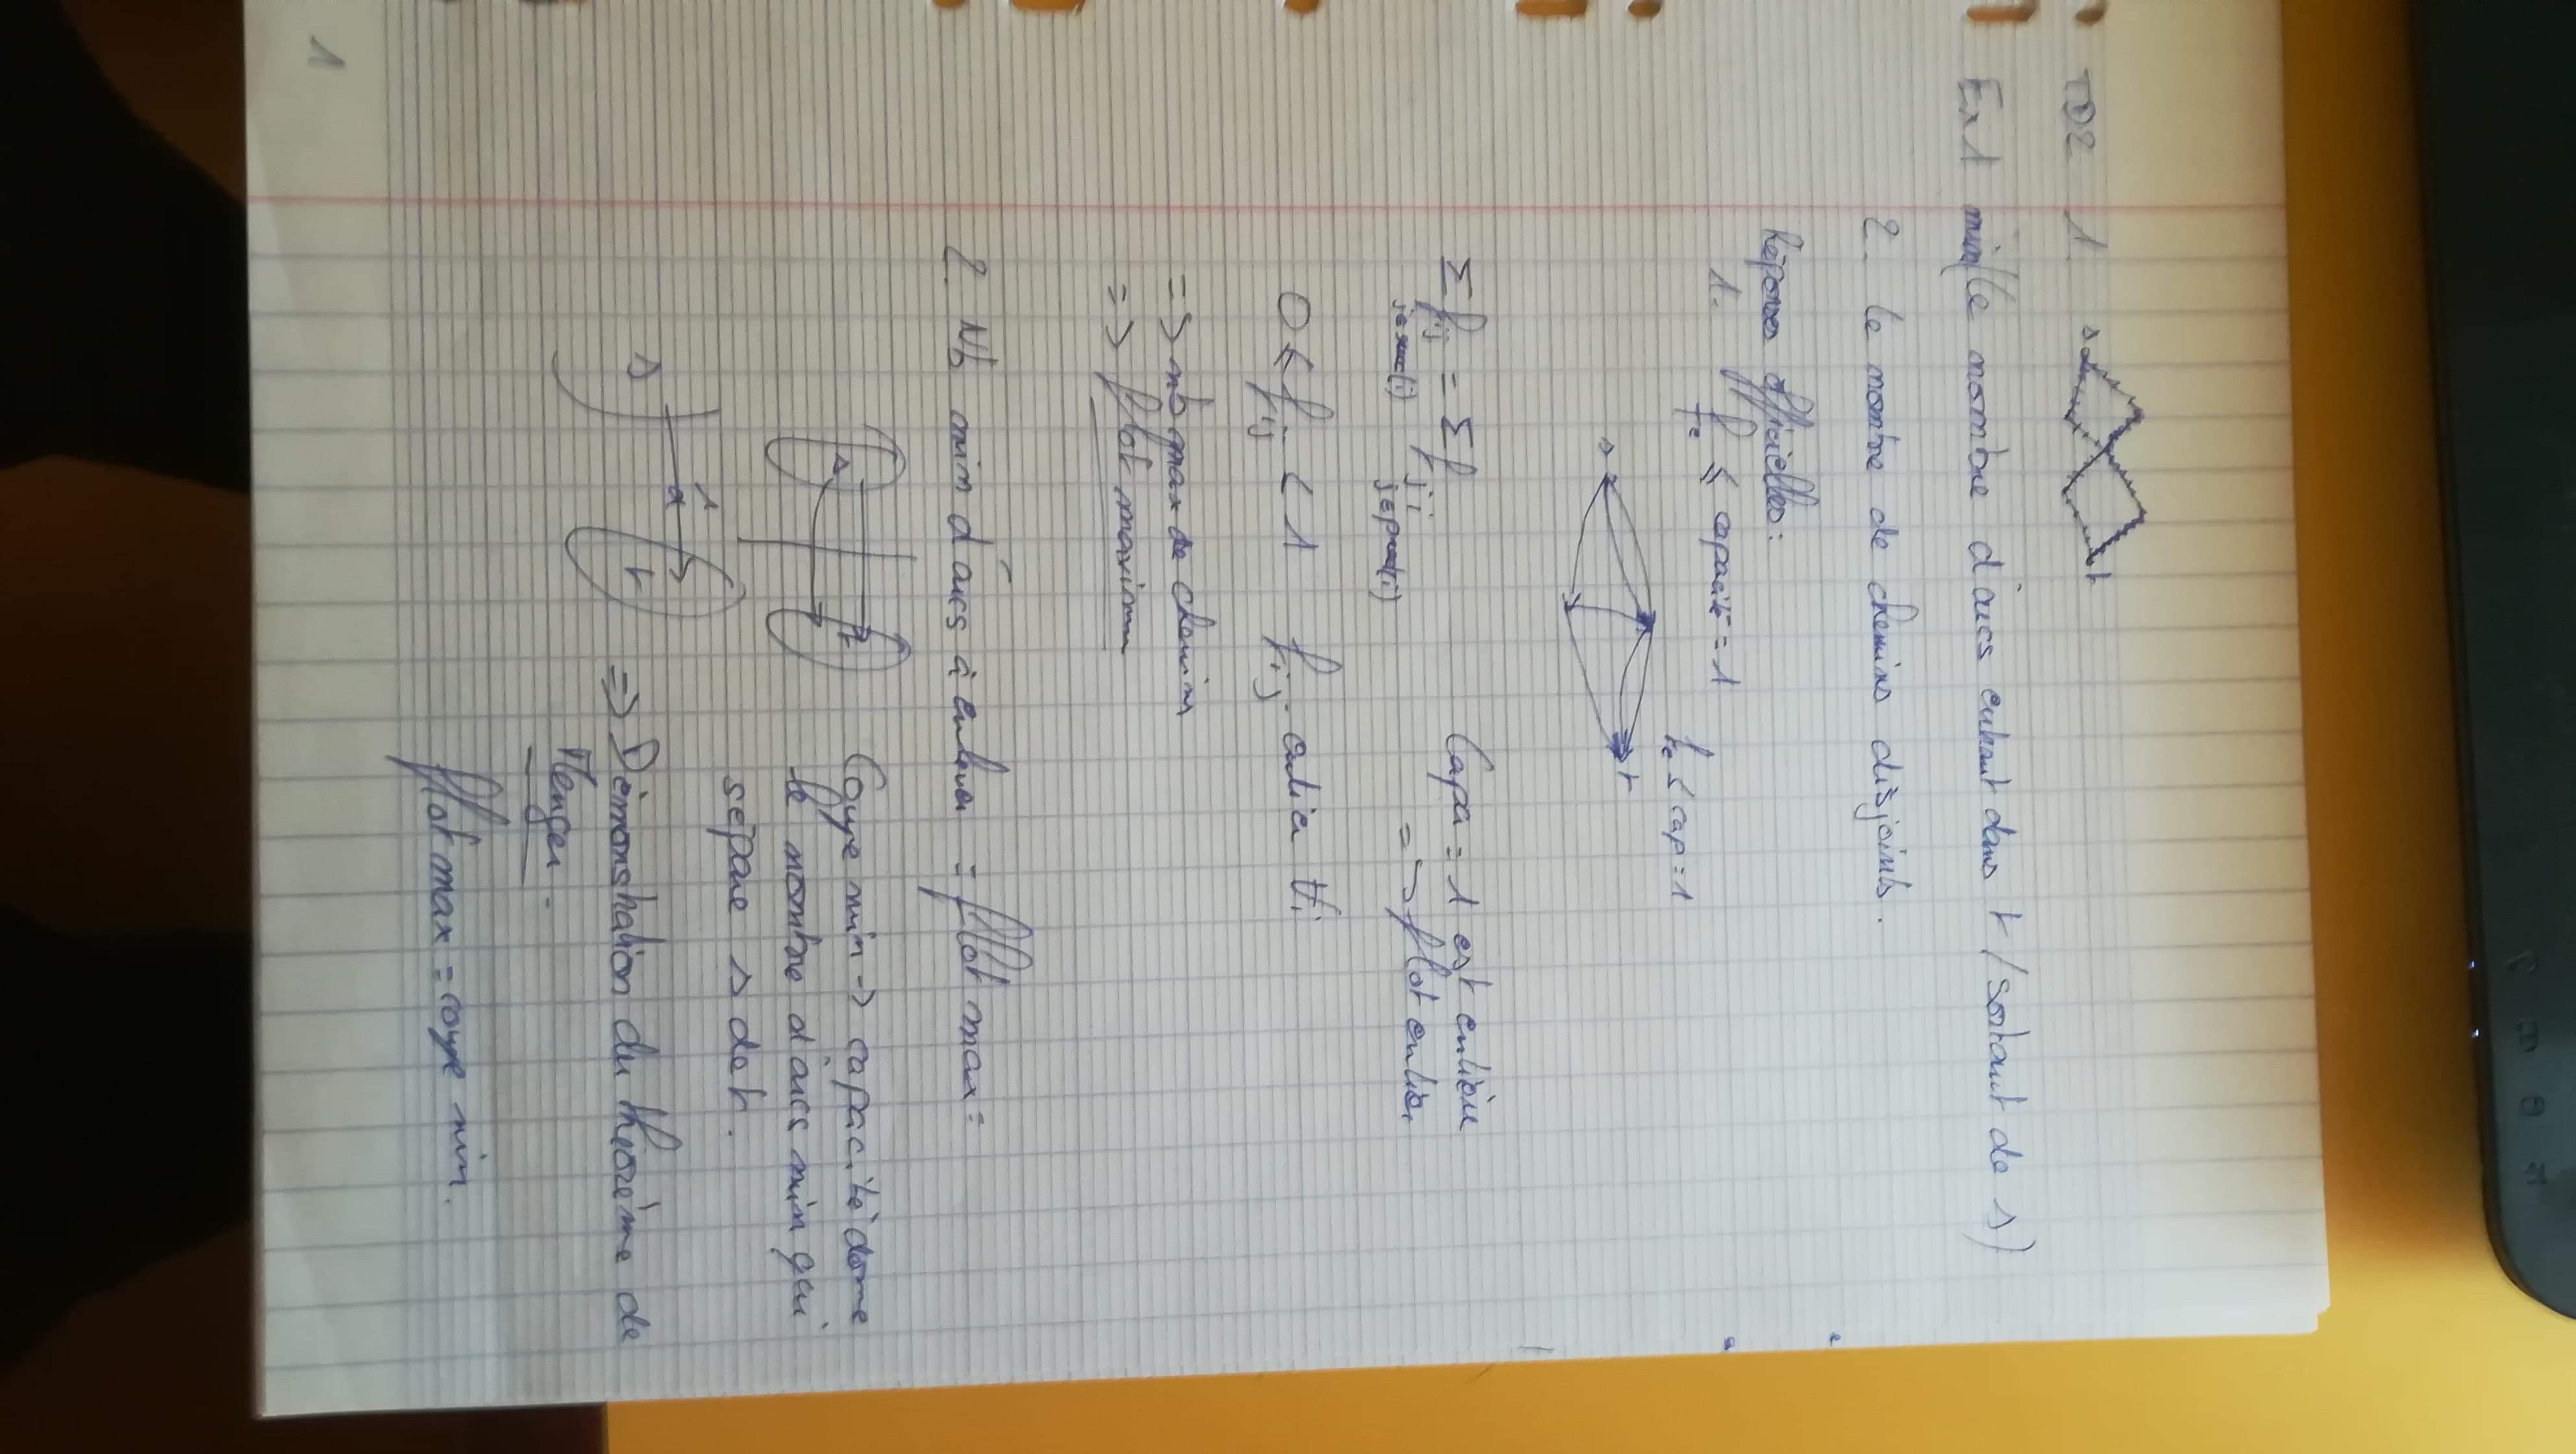 TD2 1. s t
Ex1 min(le nombre d'arcs entrant dans t / sortant de s)
2. le nombre de chemins disjoints.
Réponses officielles:
1. fe ≤ capacité = 1
fe ≤ cap = 1
s t
Σ fij = Σ fji
j∈succ(i) j∈pred(i)
Capa = 1 est entière
=> flot entier
0 ≤ fij ≤ 1 fij entier ∀i
=> nb max de chemins
=> flot maximum
2. Nb min d'arcs à enlever = flot max =
s t
Coupe min -> capacité donne
le nombre d'arcs min qui
sépare s de t.
s 1 a t
=> Démonstration du théorème de
Menger.
flot max = coupe min.
1